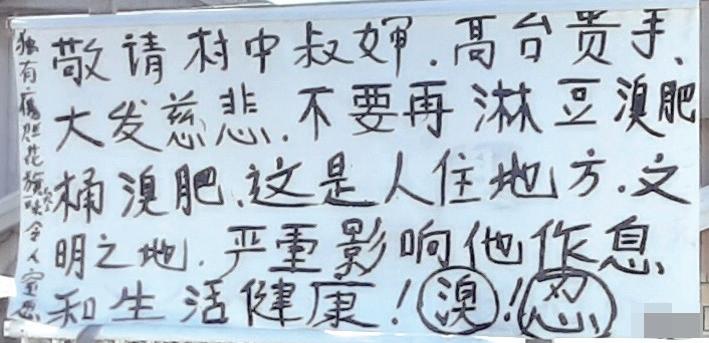 敬请村中叔婶.高台贵手、
大发慈悲.不要再淋豆溴肥
桶溴肥.这是人住地方.文
明之地.严重影响他作息、
和生活健康!溴!忍
独有
花
令人